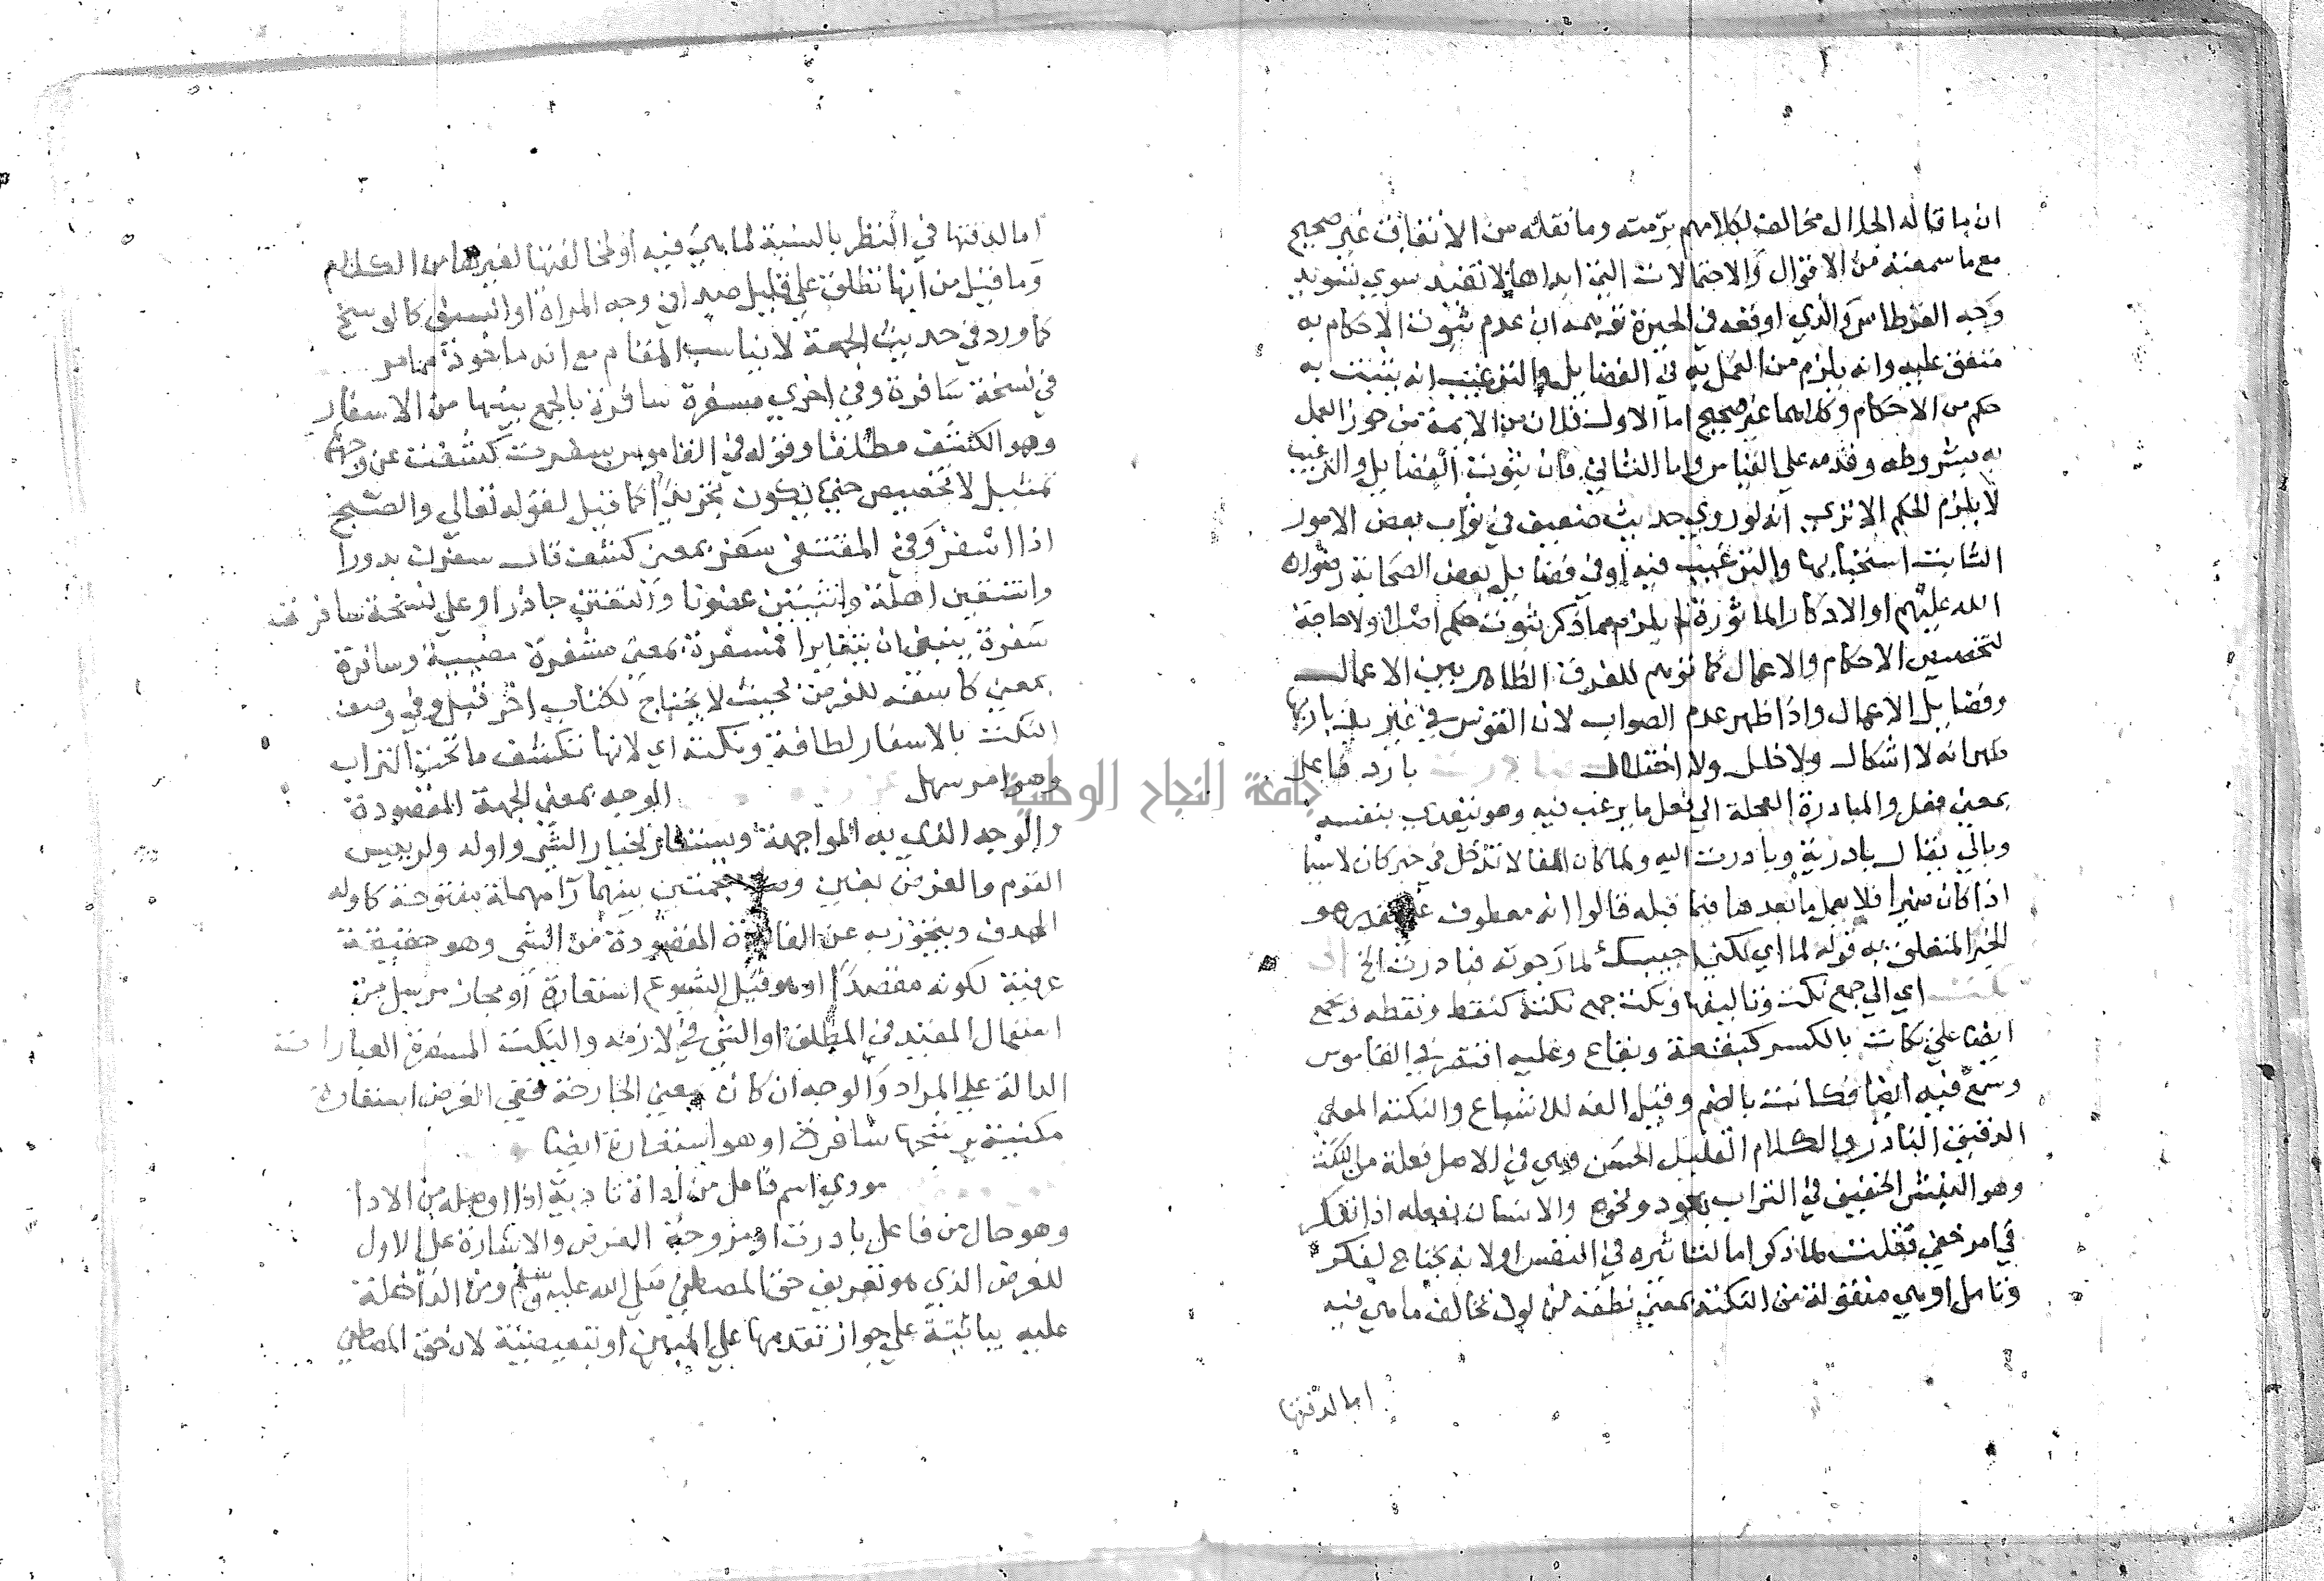 ان ما قاله الجلال مخالف لكلامهم برّمته وما نقله من الاتفاق غير صحيح
مع ما سمعته من الاقوال والاحتمالات التي ابداها لا تفيد سوي تسويد
وجه القرطاس والذي اوقعه في الحيرة توهمه ان عدم ثبوت الاحكام به
متفق عليه وانه يلزم من العمل به في الفضايل والترغيب انه يثبت به
حكم من الاحكام وكلاهما غير صحيح اما الاول فلان من الايمة من جوز العمل
به بشروطه وقدمه علي القياس واما الثاني فان ثبوت الفضايل والترغيب
لا يلزم الحكم الا تري انه لو روي حديث ضعيف في ثواب بعض الامور
الثابت استحبابها والترغيب فيه او في فضايل بعض الصحابة رضوان
الله عليهم او الاذكار الماثورة لم يلزم مما ذكر ثبوت حكم اصلا ولا حاجة
لتخصيص الاحكام والاعمال كما توهم للفرق الظاهر بين الاعمال
وفضايل الاعمال واذا ظهر عدم الصواب لان القوس في غير يد باريها
ظهر انه لا اشكال ولا خلل ولا اختلال بادر فاعل
بمعني فعل والمبادرة العجلة الي فعل ما يرغب فيه وهو يتعدي بنفسه
وبالي يقال بادرته وبادرت اليه ولما كان الفا لا تدخل في خبر كان لا سيما
اذا كان فلا يعمل ما بعدها فيما قبله قالوا انه معطوف علي مقدر هو
الخبر المتعلق به قوله لما اي لكني اجيبك لما رجوته فبادرت الخ
اي الي جمع نكت وتاليفها ونكت جمع نكتة كنقط ونقطه وتجمع
ايضا علي نكات بالكسر كبقعة وبقاع وعليه اقتصر في القاموس
وسمع فيه ايضا نكات بالضم وقيل الفه للاشباع والنكتة المعني
الدقيق النادر والكلام القليل الحسن وهي في الاصل فعلة من النكت
وهو النبش الخفيف في التراب بعود ونحوه والانسان يفعله اذا تفكر
في امر خفي فنقلت لما ذكر اما لتاثيره في النفس او لانه يحتاج لفكر
وتامل او هي منقولة من النكتة بمعني نطفة من لون تخالف ما هي فيه
اما لدقتها
اما لدقتها في النظر بالنسبة لما هي فيه او لمخالفتها لغيرها من الكلام
وما قيل من انها تطلق علي قليل صدا في وجه المراة او السيف كالوسخ
كما ورد في حديث الجمعة لا يناسب المقام مع انه ماخوذ مما مر
في نسخة سافرة وفي اخري مسفرة سافرة بالجمع بينها من الاسفار
وهو الكشف مطلقا وقوله في القاموس سفرت كشفت عن وجهها
تمثيل لا تخصيص حتي يكون تجريدا كما قيل لقوله تعالي والصبح
اذا اسفر وفي المقتفي سفر بمعني كشف قال سفرن بدورا
وانتقبن اهلة وانثنين غصونا والتفتن جاذرا وعلي نسخة سافرة
سفرة ينبغي ان يتغايرا فمسفرة بمعني مشرقة مضيئة وسافرة
بمعني كاشفة للغرض بحيث لا يحتاج لكتاب اخر قيل وفي وصف
النكت بالاسفار لطافة ونكتة اي لانها تكشف ما تحت التراب
وهو امر سهل الوجه بمعني الجهة المقصودة
والوجه الذي به المواجهة ويستعار لخيار الشي واوله ولرييس
القوم والغرض بغين معجمتين بينهما را مهملة مفتوحة كاوله
الهدف ويتجوز به عن الفايدة المقصودة من الشي وهو حقيقة
عرفية لكونه مقصدا او هو قبل الشيوع استعارة او مجاز مرسل من
استعمال المقيد في المطلق او الشي في لازمه والنكت المسفرة العبارات
الدالة علي المراد والوجه ان كان بمعني الجارحة ففي الغرض استعارة
مكنية ترشحها سافرة او هو استعارة ايضا
مودي اسم فاعل من اداه تادية اذا اوصله من الادا
وهو حال من فاعل بادرت او مزوجة الغرض والاشارة علي الاول
للغرض الذي هو تعريف حق المصطفي صلي الله عليه وسلم ومن الداخلة
عليه بيانية علي جواز تقدمها علي المبهم او تبعيضية لان حق المصطفي
جامعة النجاح الوطنية